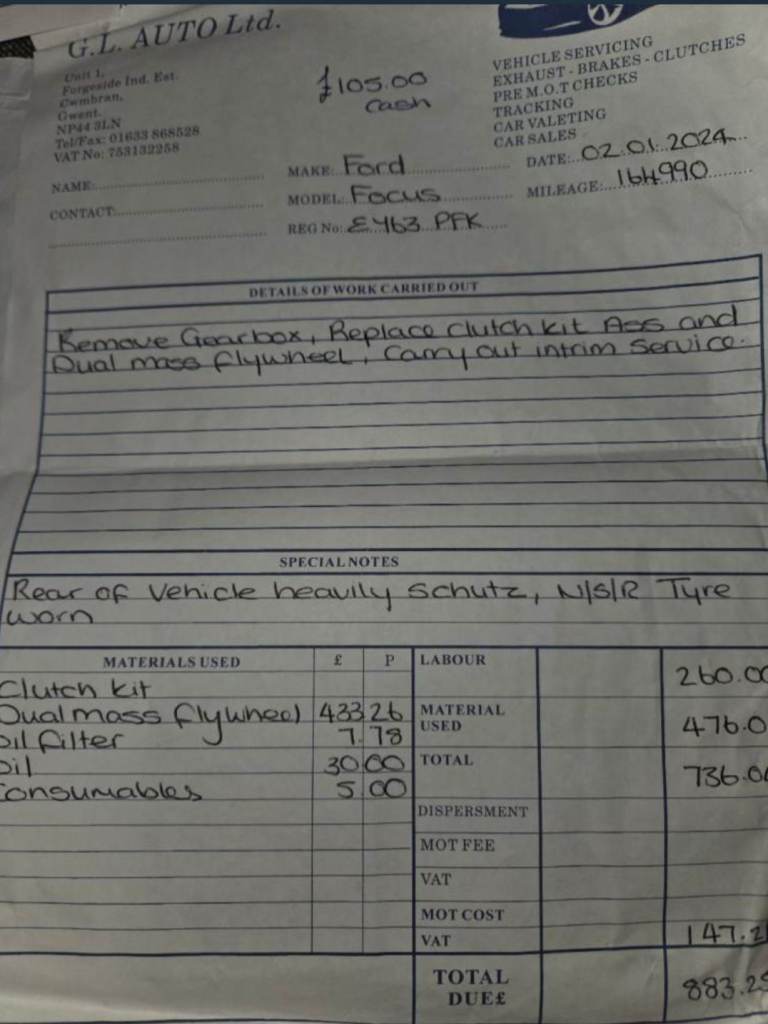 G.L. AUTO Ltd.
Unit 1,
Forgeside Ind. Est.
Cwmbran,
Gwent.
NP44 3LN
Tel/Fax: 01633 868528
VAT No: 753132258
£105.00
cash
VEHICLE SERVICING
EXHAUST - BRAKES - CLUTCHES
PRE M.O.T CHECKS
TRACKING
CAR VALETING
CAR SALES
NAME:
CONTACT:
MAKE: Ford
MODEL: Focus
REG No: EY63 PFK
DATE: 02.01.2024
MILEAGE: 164990
DETAILS OF WORK CARRIED OUT
Remove Gearbox, Replace Clutch kit Ass and
Dual mass flywheel, Carry out intrim service.
SPECIAL NOTES
Rear of vehicle heavily schutz, N/S/R Tyre
worn
MATERIALS USED £ P
Clutch kit
Dual mass flywheel 433 26
oil filter 7.78
oil 30 00
Consumables 5 00
LABOUR 260.00
MATERIAL USED 476.0
TOTAL 736.0
DISPERSMENT
MOT FEE
VAT
MOT COST
VAT 147.2
TOTAL DUE£ 883.25